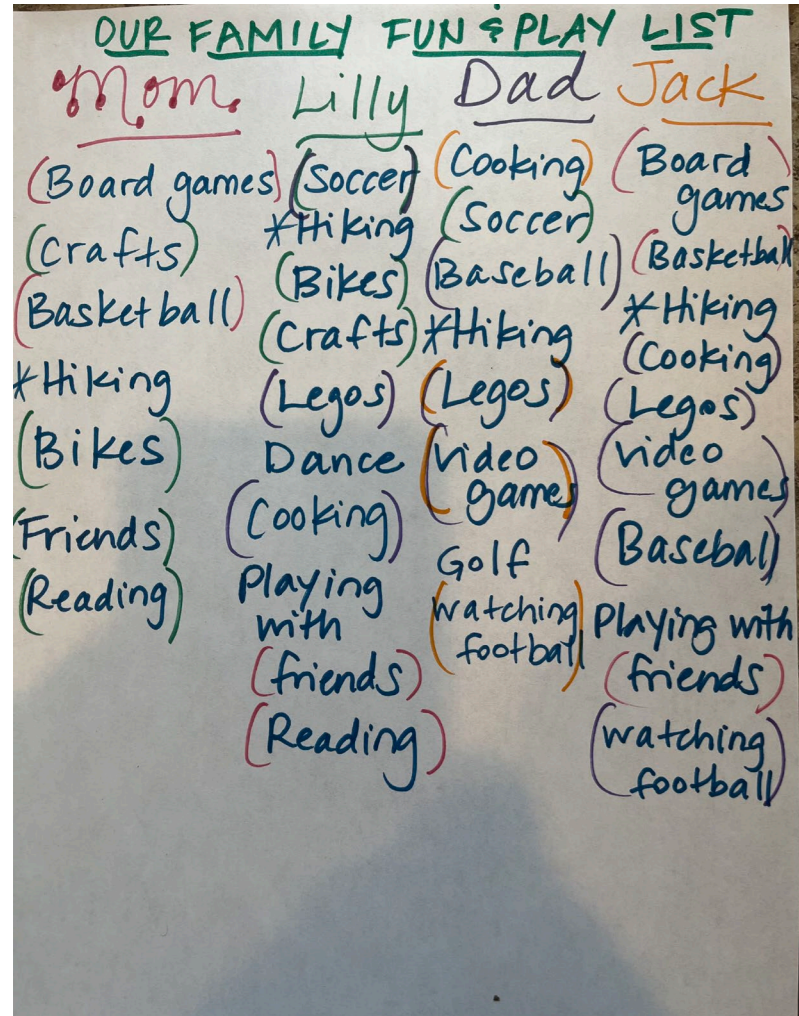 OUR FAMILY FUN & PLAY LIST
Mom
(Board games)
(Crafts)
(Basketball)
*Hiking
(Bikes)
(Friends)
(Reading)
Lilly
(Soccer)
*Hiking
(Bikes)
(Crafts)
(Legos)
Dance
(Cooking)
Playing
with
(friends)
(Reading)
Dad
(Cooking)
(Soccer)
(Baseball)
*Hiking
(Legos)
(Video
games)
Golf
(watching
football)
Jack
(Board
games)
(Basketball
*Hiking
(Cooking)
(Legos)
(video
games)
(Baseball)
Playing with
(friends)
(watching
football)